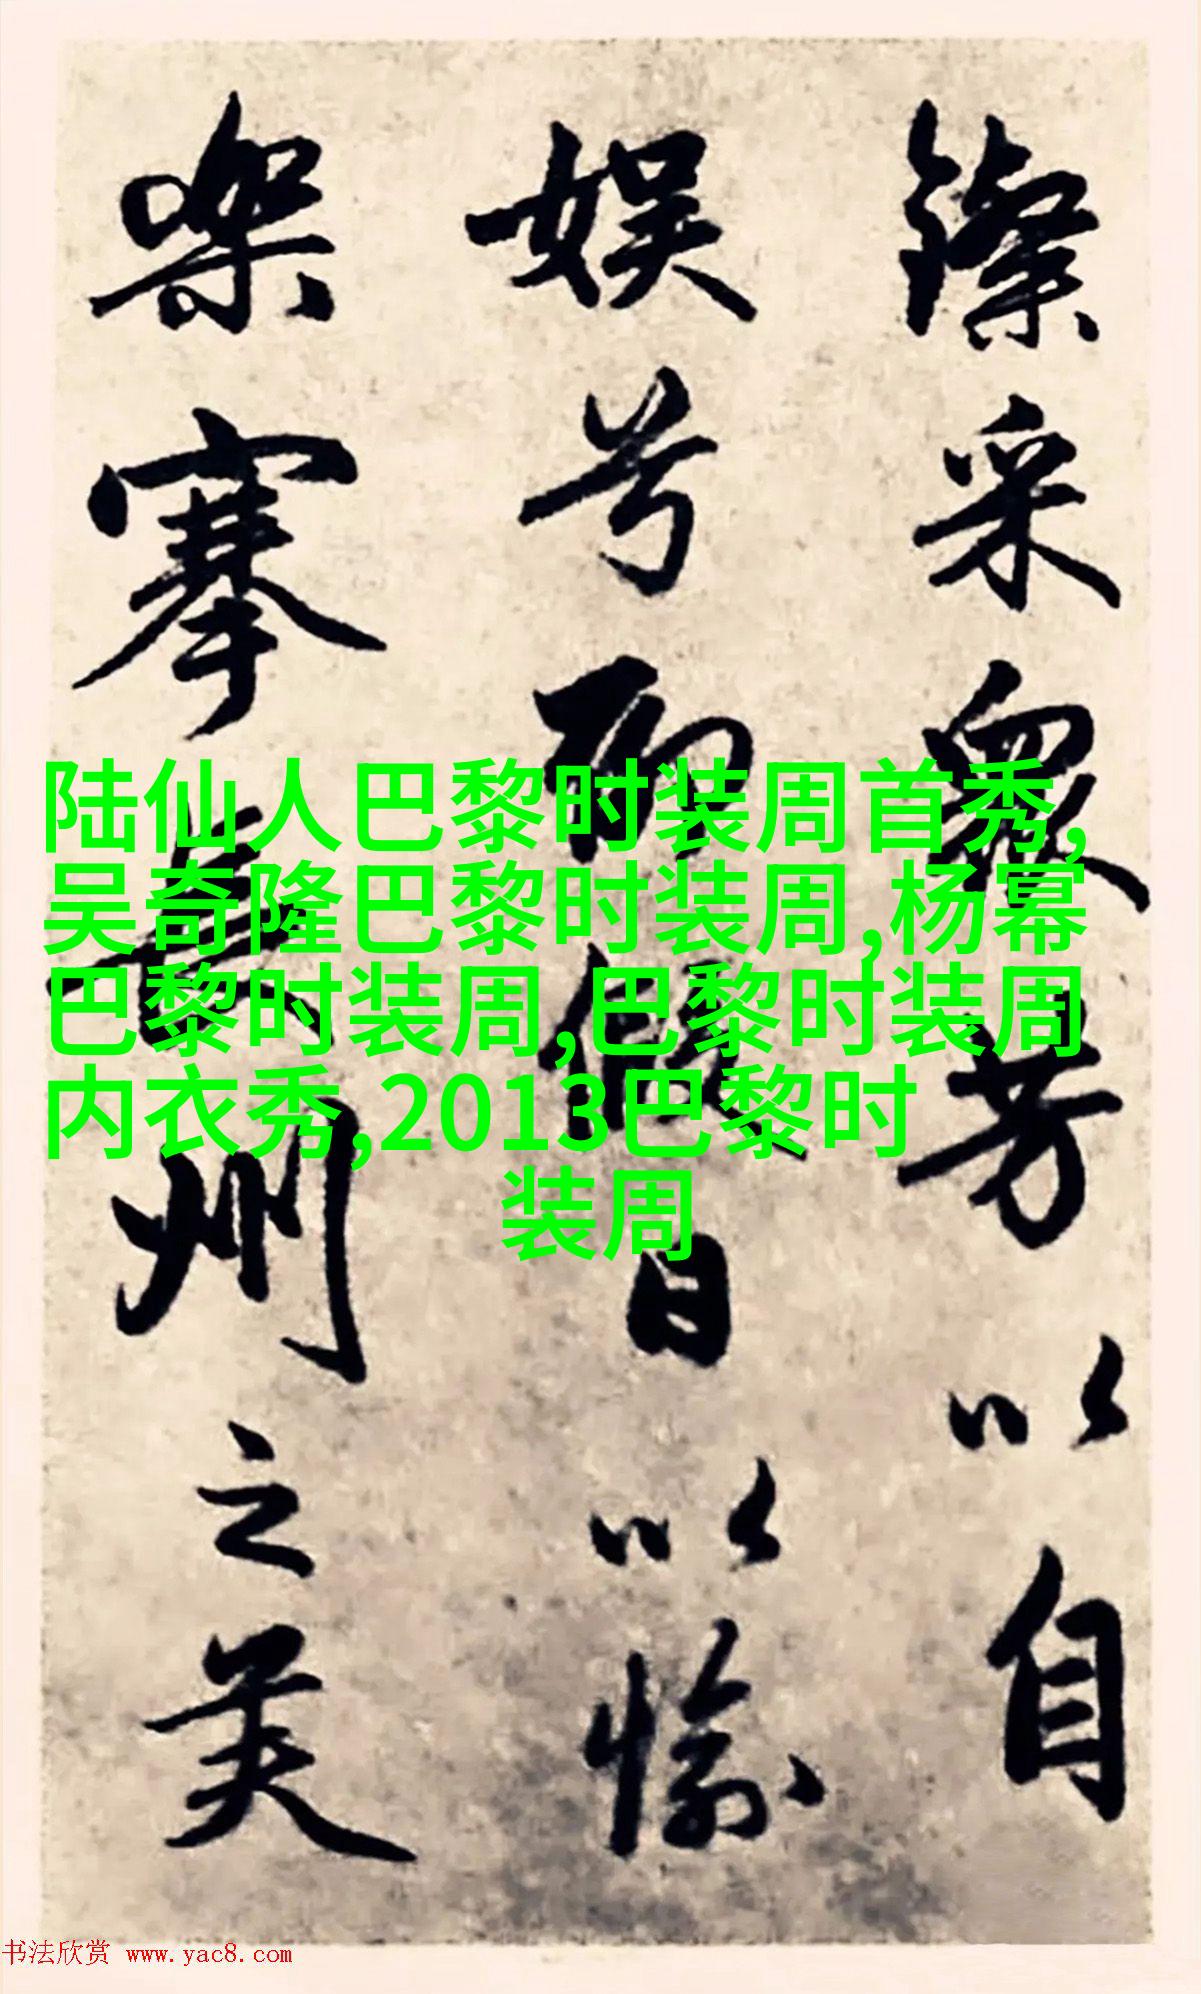 陆仙人巴黎时装周首秀,
吴奇隆巴黎时装周,杨幂
巴黎时装周,巴黎时装周
内衣秀,2013巴黎时
装周
采眾芳以自
娱兮聊假日以愉
樂搴長州之美
书法欣赏 www.yac8.com